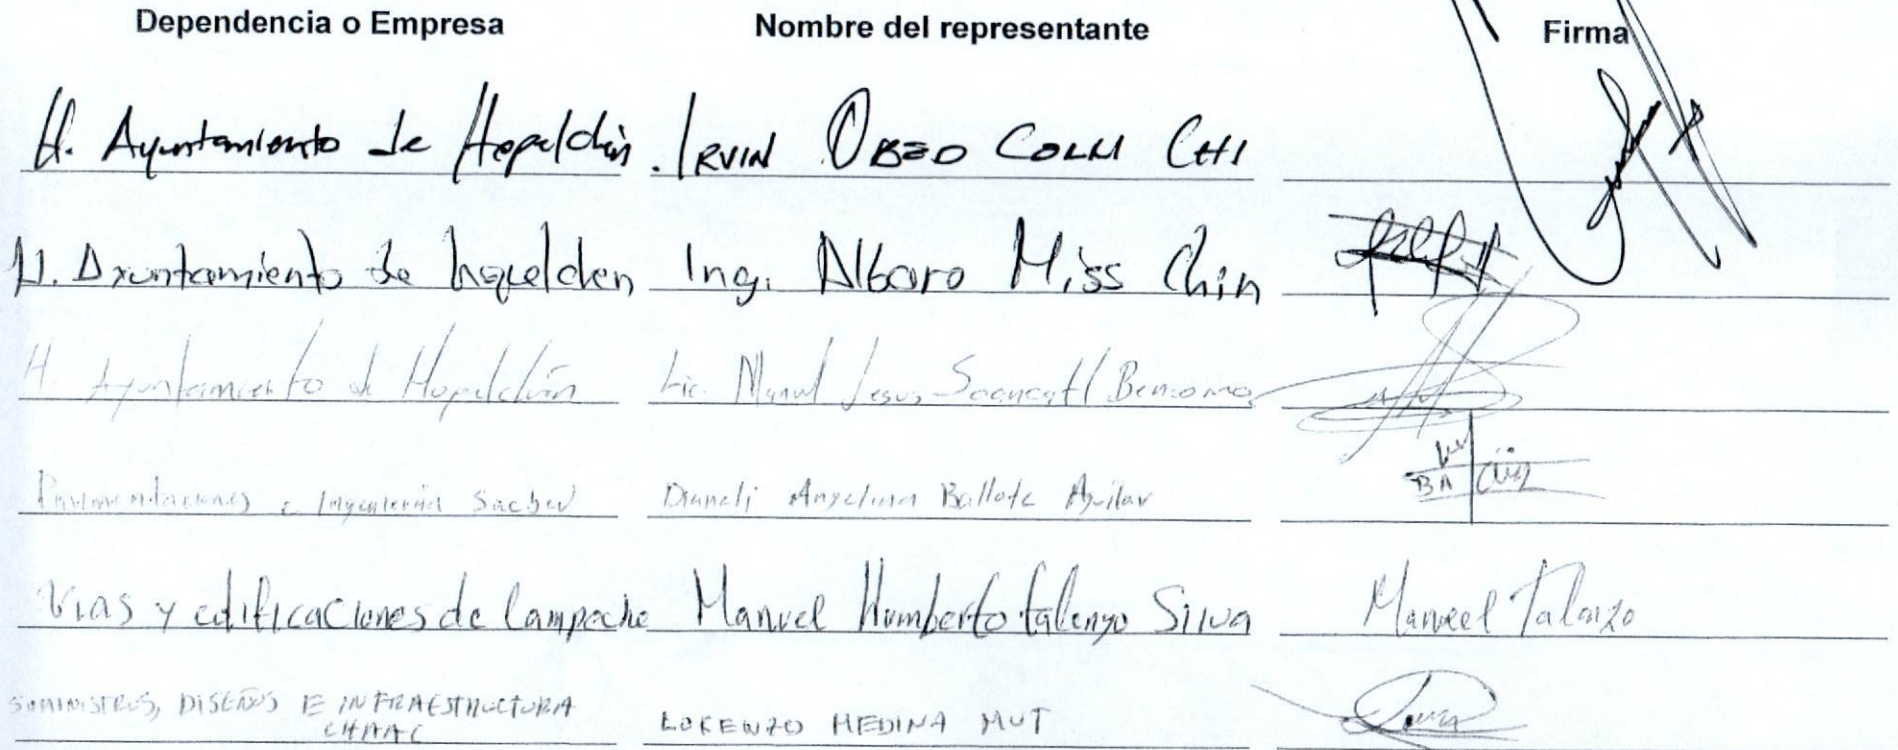 Dependencia o Empresa Nombre del representante Firma
H. Ayuntamiento de Hopelchén. IRVIN OBED COLLI CHI
H. Axuntamiento de hopelchen Ing. Albaro Miss Chin
H. Ayuntamiento de Hopelchén Lic. Manuel Jesus Bencomo
Pavimentaciones e Ingenieria Sacbej Dianeli Angelina Ballote Aguilar BA
Vias y edificaciones de Campeche Manuel Humberto Talango Silva Manuel
SUMINISTROS, DISEÑOS E INFRAESTRUCTURA
CHAAC LORENZO MEDINA MUT